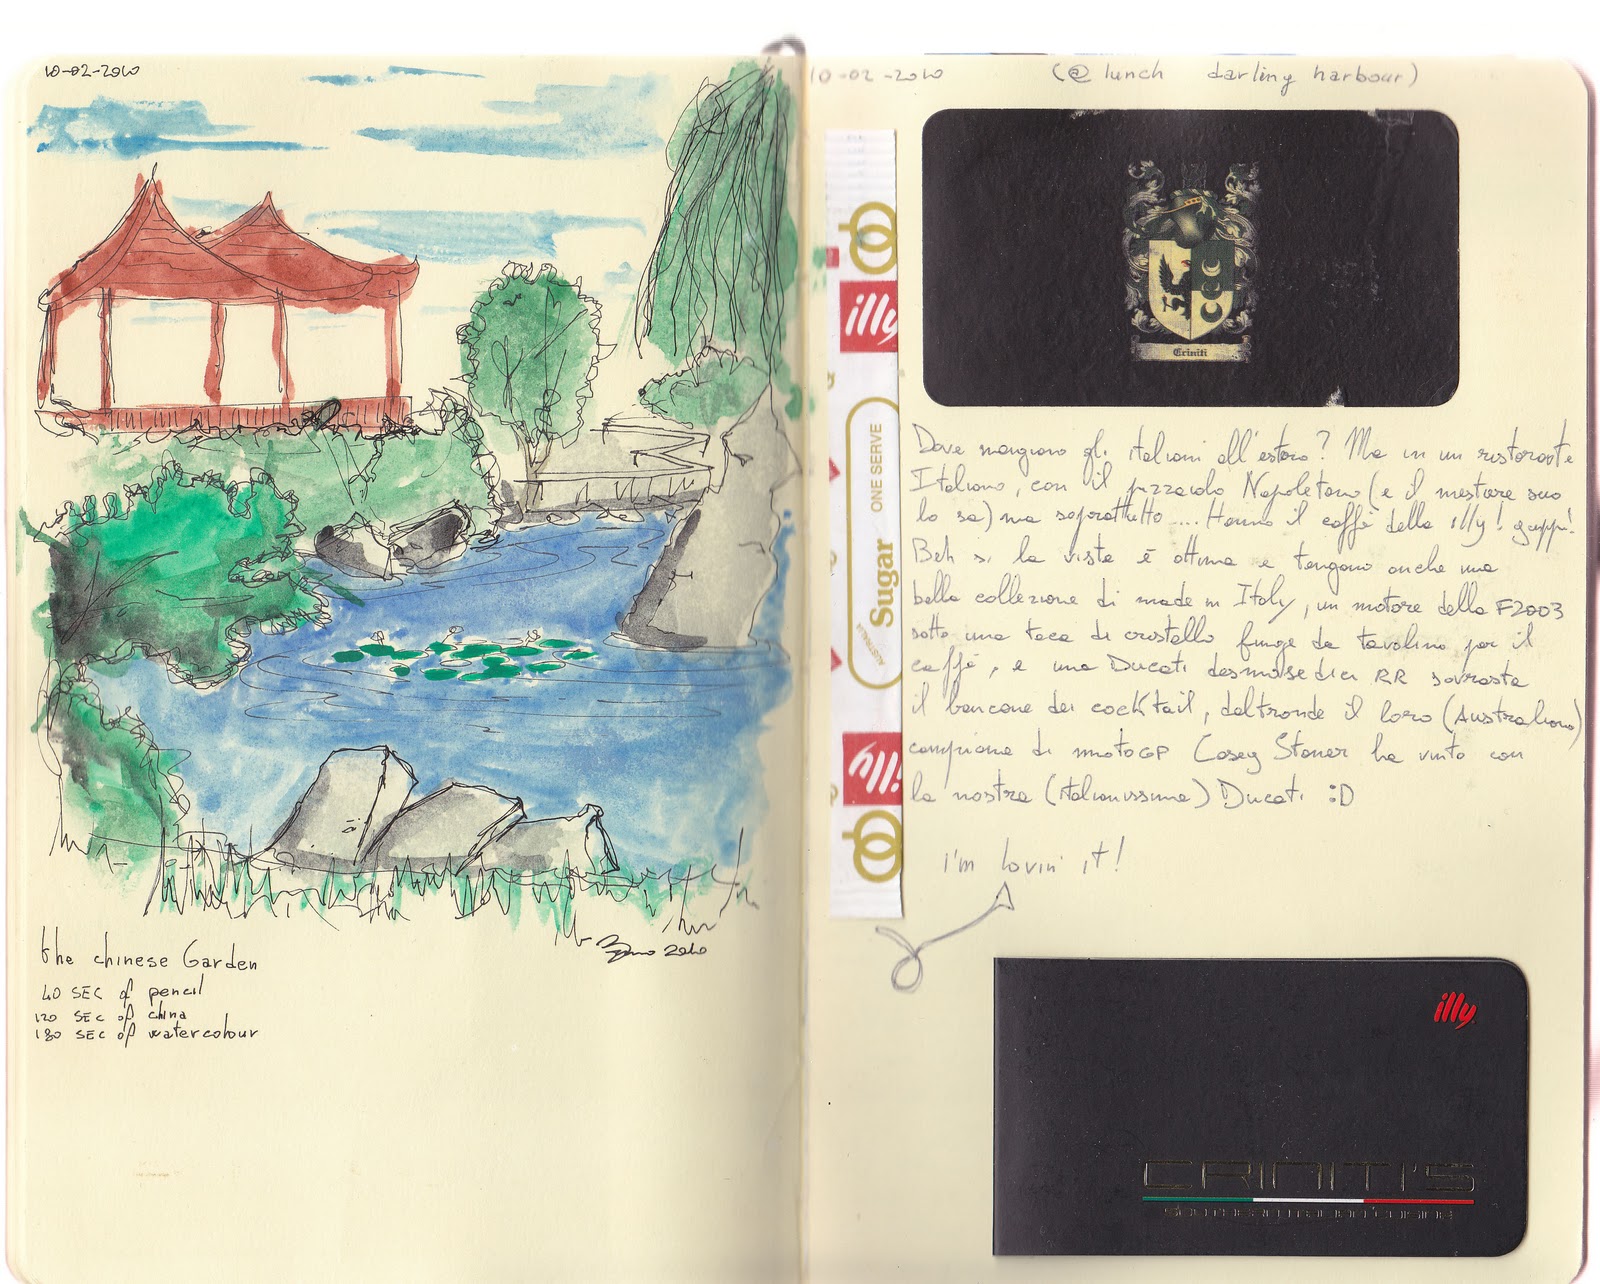 10-02-2010
the chinese Garden
40 SEC of pencil
120 SEC of china
180 SEC of watercolour
2010
10-02-2010 (@ lunch darling harbour)
Criniti
illy
ONE SERVE
Sugar
AUSTRALIA
illy
Dove mangiano gli italiani all'estero? Ma in un ristorante
Italiano, con il pizzaiolo Napoletano (e il mestiere suo
lo sa) ma soprattutto .... Hanno il caffè della illy! yuppi!
Beh si la vista è ottima e tengono anche una
bella collezione di made in Italy, un motore della F2003
sotto una teca di cristallo funge da tavolino per il
caffè, e una Ducati desmosedici RR sovrasta
il bancone dei cocktail, daltronde il loro (Australiano)
campione di motoGP Casey Stoner ha vinto con
la nostra (italianissima) Ducati :D
i'm lovin' it!
illy
CRINITI'S
SOUTHERN ITALIAN CUISINE